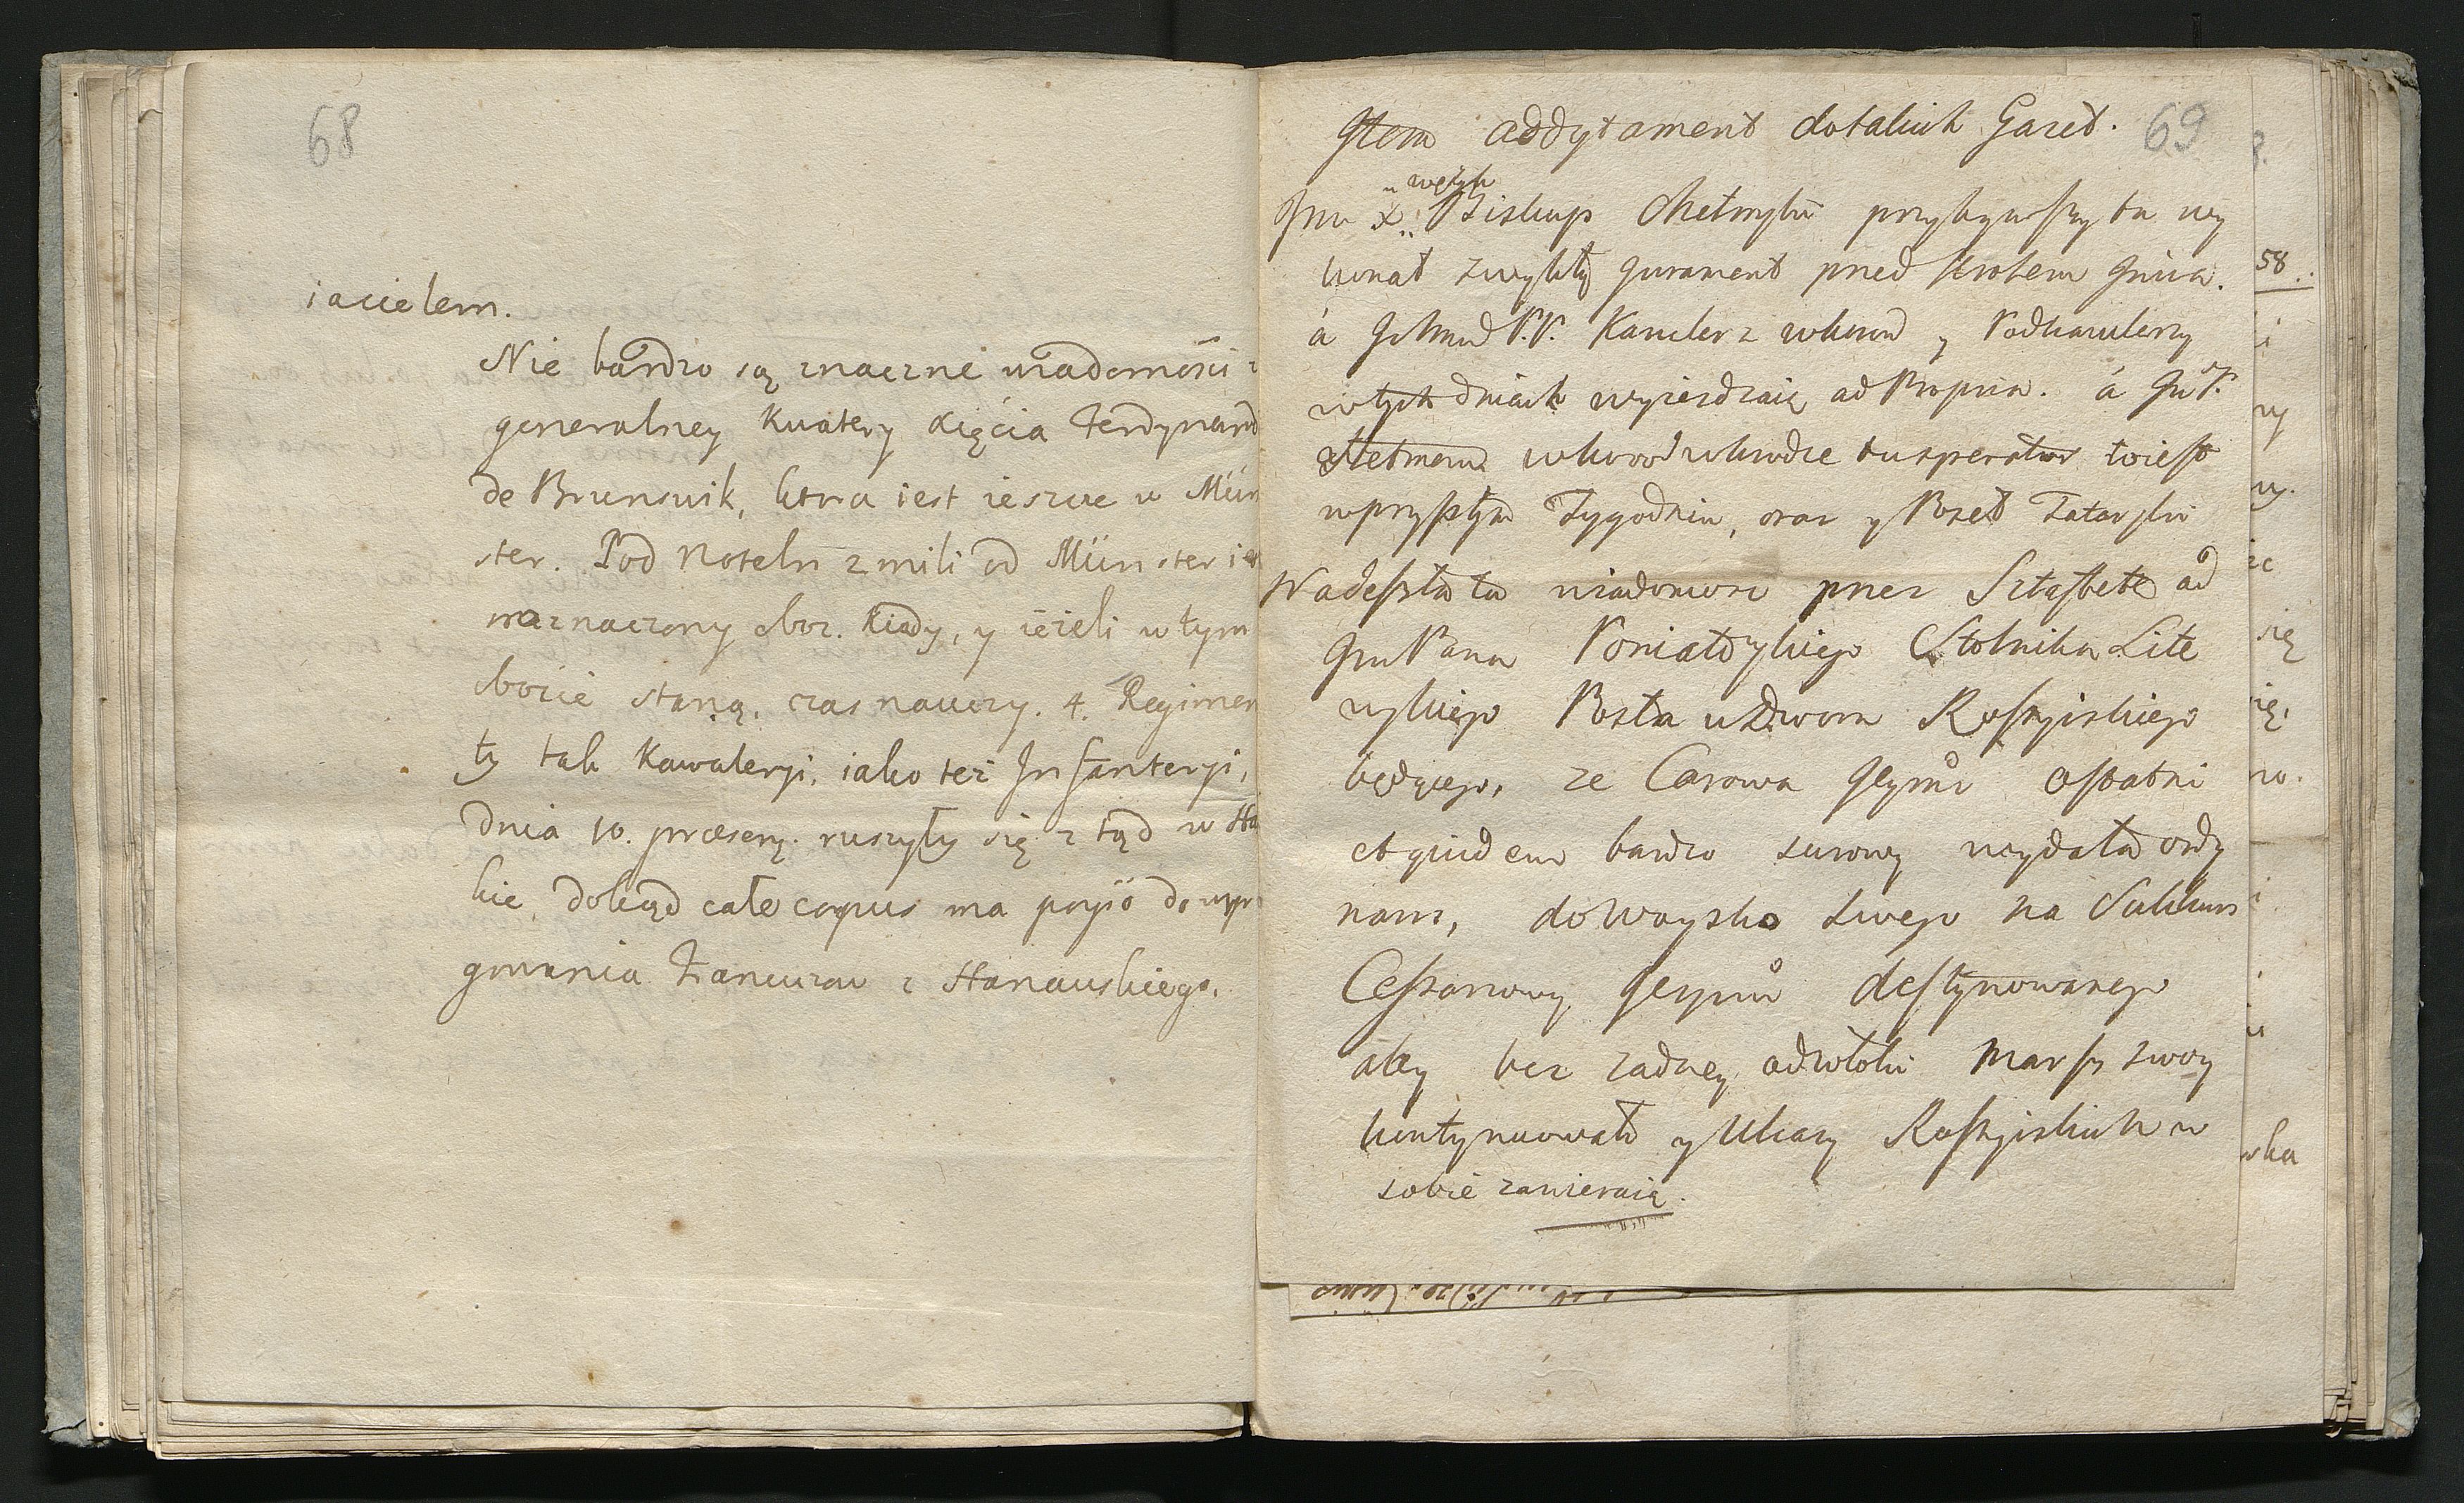 68
iacielem.
Nie bardzo są znaczne wiadomości z
generalney Kwatery Xięcia Ferdynand
de Brunswik, ktora iest ieszcze w Mün
ster. Pod Noteln 2 mili od Münster ie
wyznaczony oboz. Kiedy, y ieżeli w tym
obozie staną, czas nauczy. 4. Regimen
ty tak Kawaleryi, iako też Infanteryi,
dnia 10. præsen. ruszyły się z tąd w Ha
kie, dokąd całe corpus ma poyść do
gowania Francuzow z Hanauskiego.
69
Item addytament dotakich Gazet.
Jmć X. Biskup Chełmyski przybywszy tu wy
konał zwykły Jurament przed Krolem Jmcią.
á PP. Kanclerz wkoron y Podkanclerzy
wtych dniach wyieżdzaią ad Propria. á Jm P.
Hetmana wkoron wkrodce tu speratur toiest
wprzyszłym Tygodniu, oraz y Poseł Tatarski
Nadeszła tu wiadomosc przez Sztafete od
Jm Pana Poniatowskiego Stolnika Lite
wskiego Posła u Dworu Rossyiskiego
będącego, ze Carowa Jeymć ostatni
et quidem bardzo surowy wydała ordy
nans, do Woyska swego na Sukkurs
Cesarzowy Jeymci destynowanego
aby bez zadney odwłoki Marsz swoy
kontynuowało y Ukazy Rossyiskich w
sobie zawieraią.
58
się